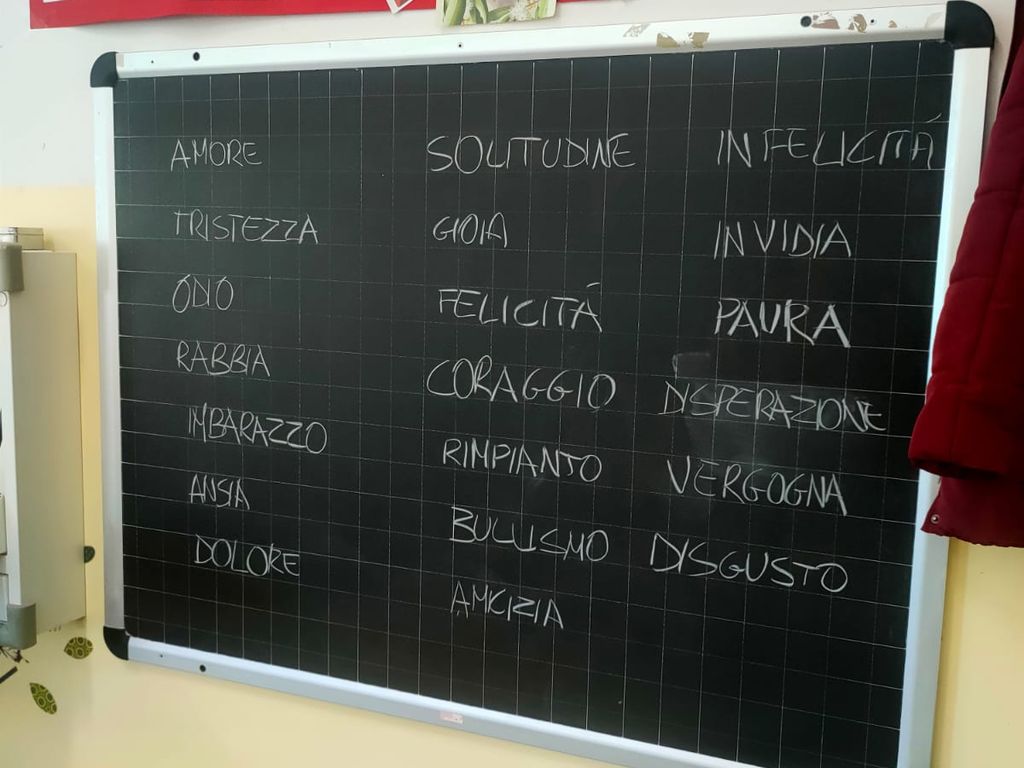 AMORE
TRISTEZZA
ODIO
RABBIA
IMBARAZZO
ANSIA
DOLORE
SOLITUDINE
GIOIA
FELICITÁ
CORAGGIO
RIMPIANTO
BULLISMO
AMICIZIA
INFELICITÁ
INVIDIA
PAURA
DISPERAZIONE
VERGOGNA
DISGUSTO